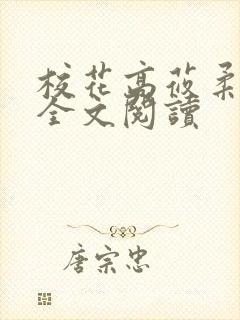 校花高莜柔
全文閱讀
唐宗忠